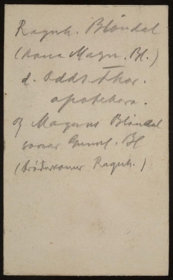 Ragnh. Blöndal
(kona Magn. Bl.)
d. Odds Thor.
apothekera.
og Magnus Blöndal
sonur Gunnl. Bl
(bróðursonur Ragnh.)